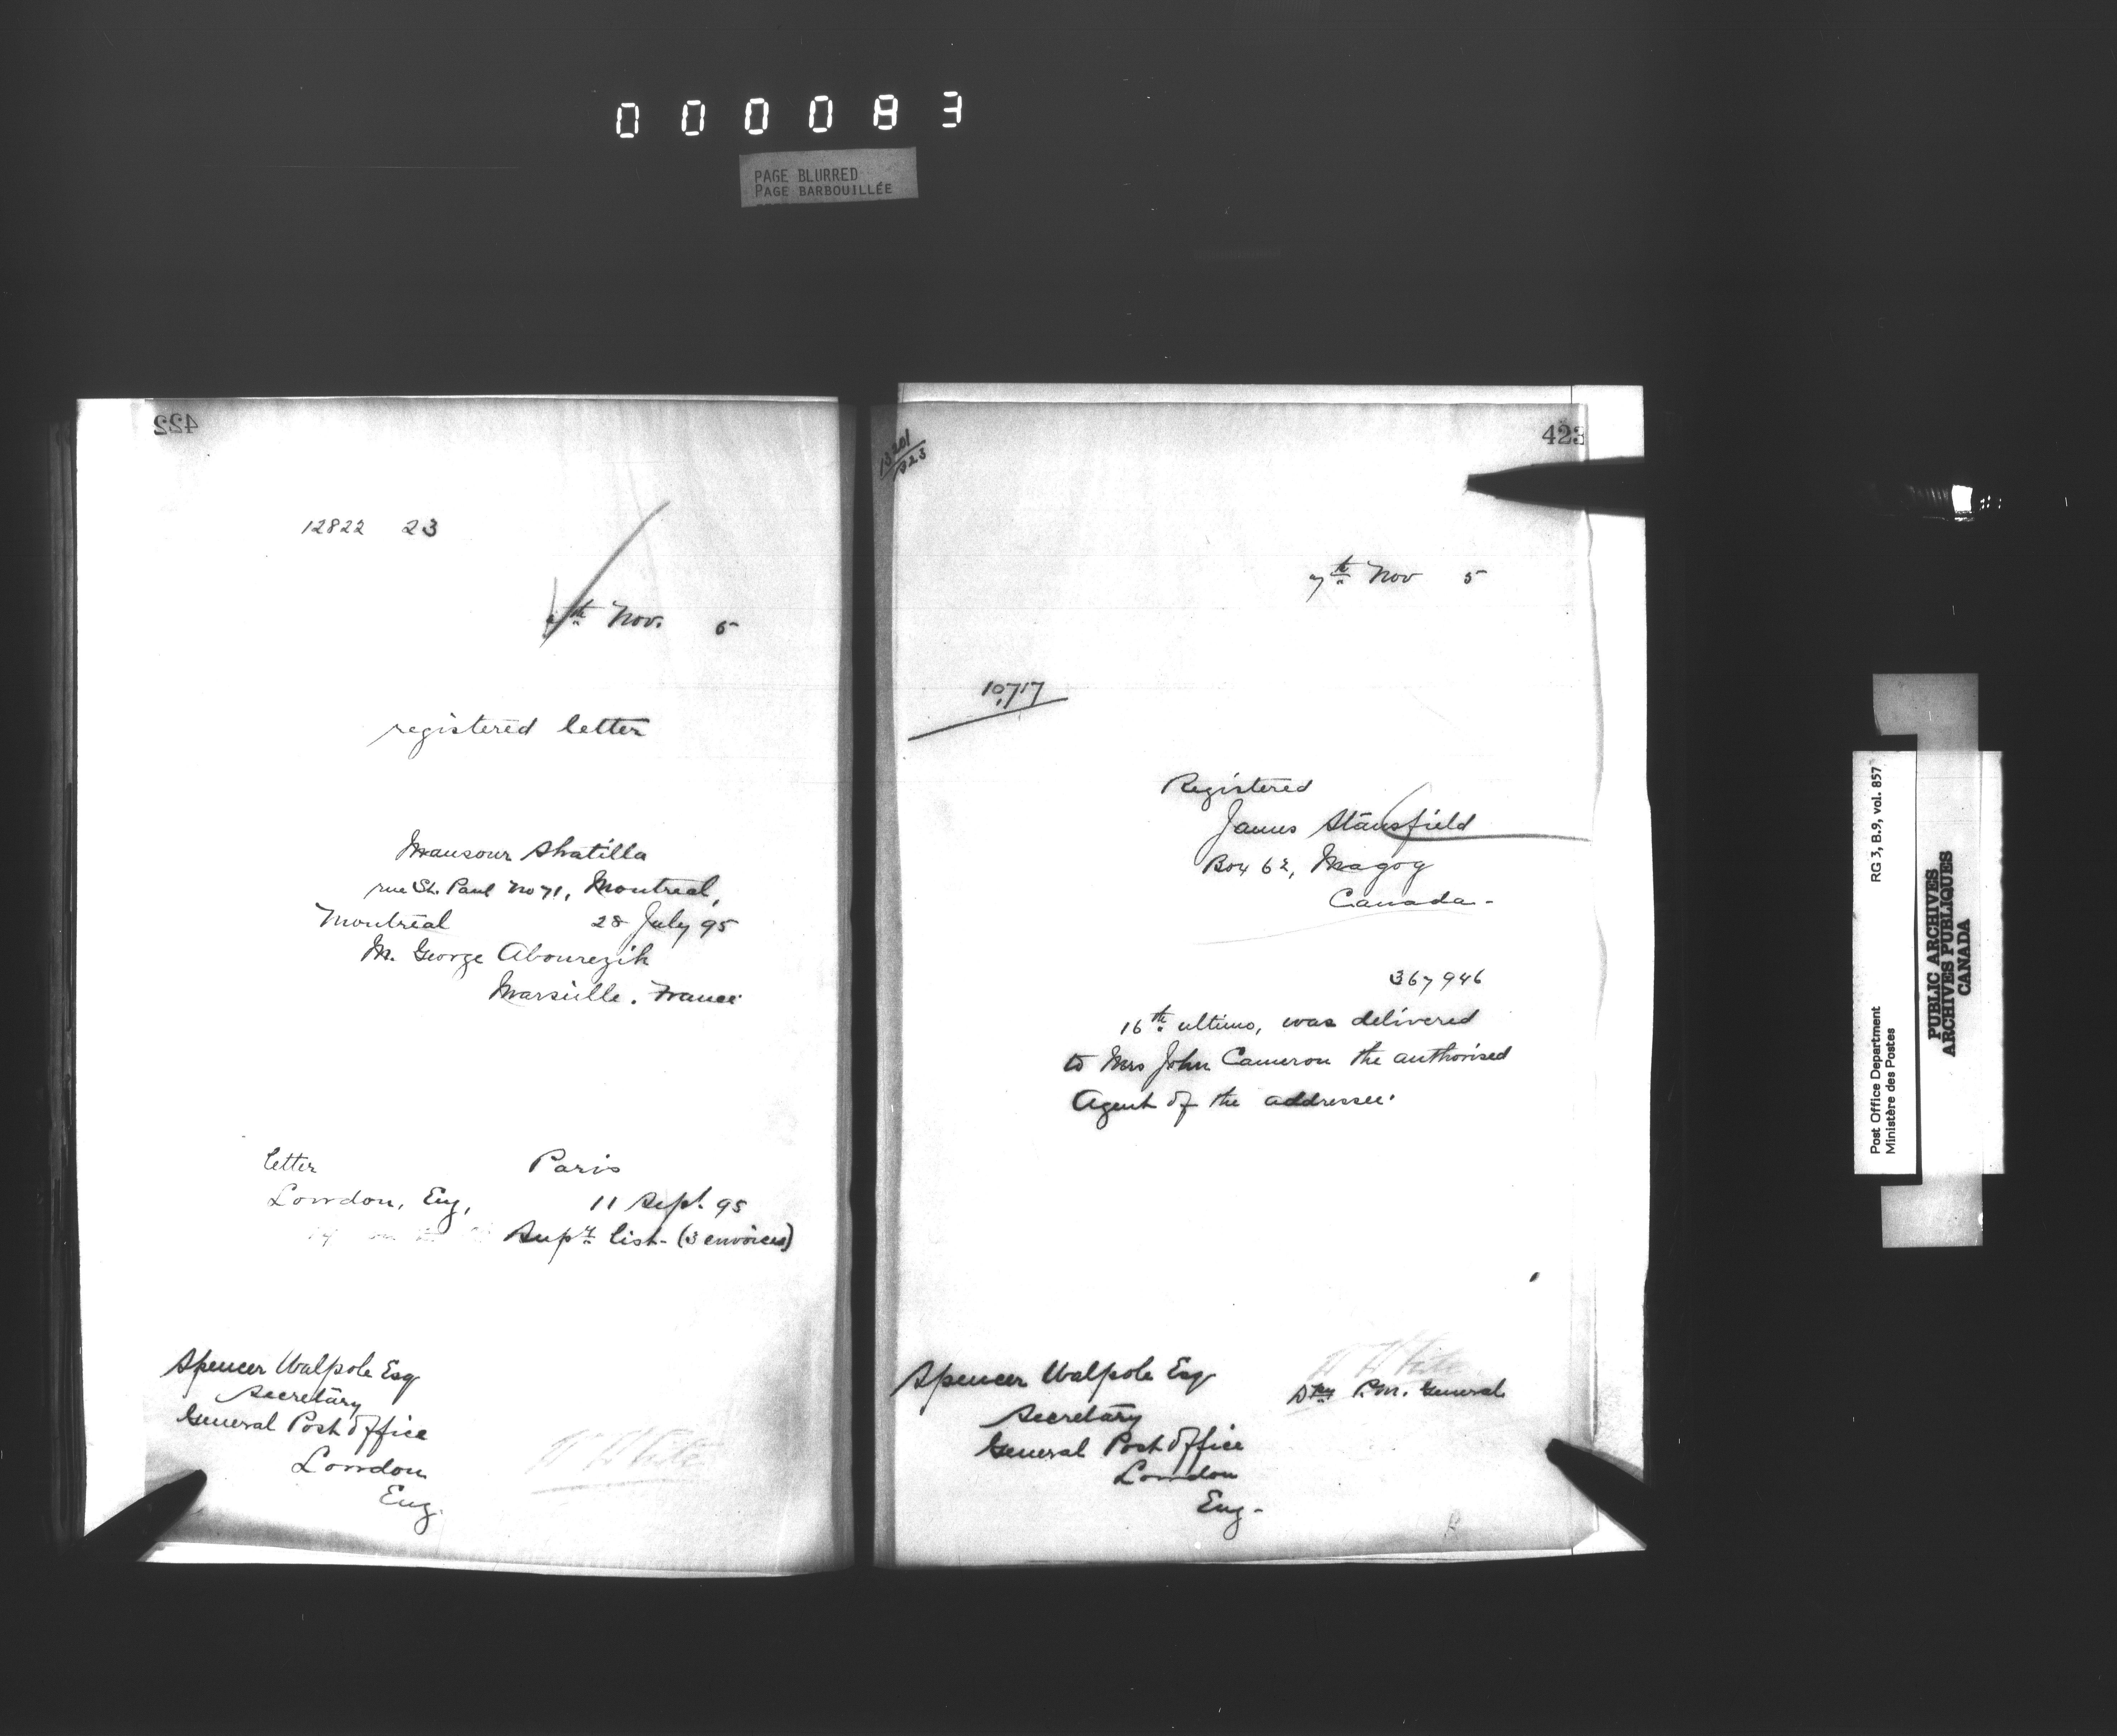 000083
PAGE BLURRED
PAGE BARBOUILLÉE
422
12822 23
th Nov. 5
registered letter
Mansour Shatilla
rue St. Paul No 71, Montreal,
Montreal 28 July 95
M. George Abourezik
Marseille. France
letter Paris
London, Eng, 11 Sept. 95
Supy list- (3 envoices)
Spencer Walpole Esq
Secretary
General Post Office
London
Eng.
W White
423
13201
7th Nov 5
10,717
Registered
James Stansfield
Box 62, Magog
Canada -
367946
16th ultimo, was delivered
to Mrs John Cameron the authorised
Agent of the addressee.
W White
Dty P.M. General
Spencer Walpole Esq
Secretary
General Post Office
London
Eng-
R
Post Office Department RG 3, B.9, vol. 857
Ministère des Postes
PUBLIC ARCHIVES
ARCHIVES PUBLIQUES
CANADA